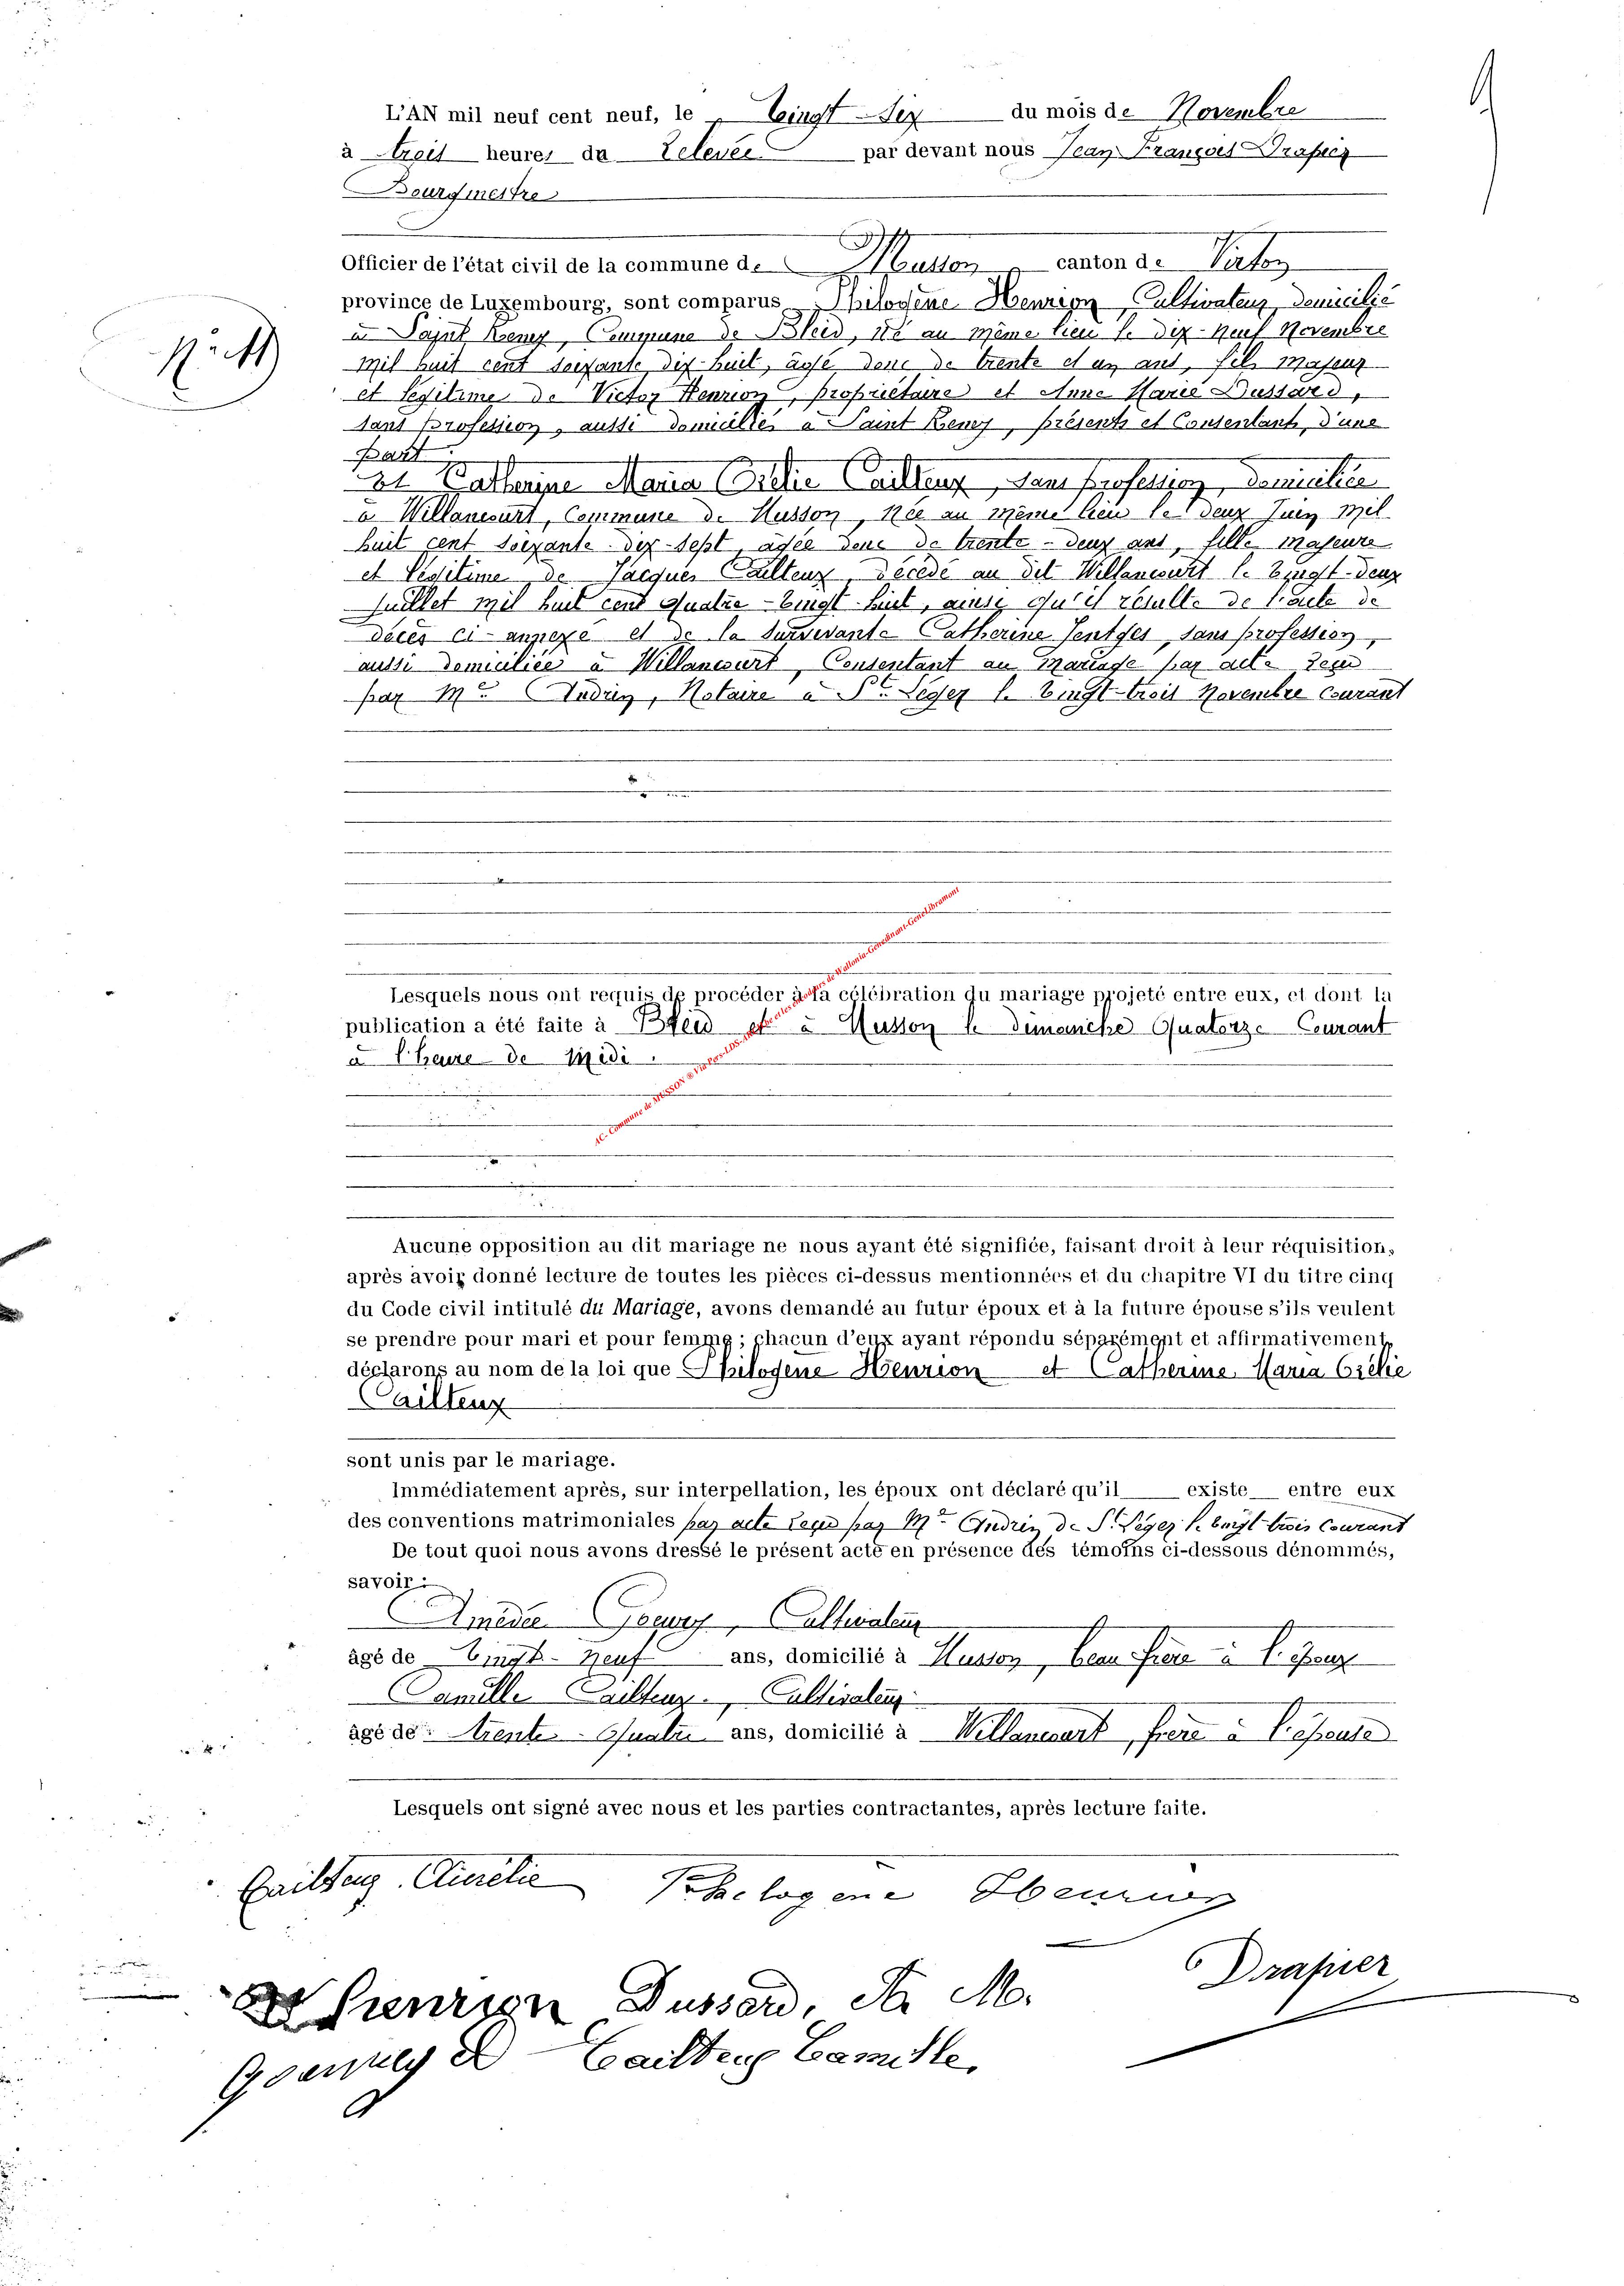 L'AN mil neuf cent neuf, le Vingt-Six du mois de Novembre
à trois heures du relevée par devant nous Jean François Drapier
Bourgmestre
Officier de l'état civil de la commune de Musson, canton de Virton
province de Luxembourg, sont comparus Philogène Henrion, Cultivateur, domicilié
à Saint Remy, Commune de Bleid, né au même lieu le dix-neuf Novembre
mil huit cent soixante dix-huit, âgé donc de trente et un ans, fils majeur
et légitime de Victor Henrion, propriétaire et Anne Marie Dussard,
sans profession, aussi domiciliés à Saint Remy, présents et Consentants, d'une
part.
et Catherine Maria Cailteux, sans profession, domiciliée
à Willancourt, Commune de Musson, née au même lieu le deux Juin mil
huit cent soixante-dix-sept, âgée donc de trente-deux ans, fille majeure
et légitime de Jacques Cailteux, décédé au dit Willancourt le Vingt-deux
Juillet mil huit cent quatre-vingt-huit, ainsi qu'il résulte de l'acte de
décès ci-annexé et de la survivante Catherine Jentges, sans profession,
aussi domiciliée à Willancourt, Consentant au mariage par acte reçu
par Me Andrin, Notaire à St. Léger le vingt-trois Novembre courant
Lesquels nous ont requis de procéder à la célébration du mariage projeté entre eux, et dont la
publication a été faite à Bleid et à Musson le dimanche Quatorze Courant
à l'heure de midi.
AC- Commune de MUSSON
Aucune opposition au dit mariage ne nous ayant été signifiée, faisant droit à leur réquisition,
après avoir donné lecture de toutes les pièces ci-dessus mentionnées et du chapitre VI du titre cinq
du Code civil intitulé du Mariage, avons demandé au futur époux et à la future épouse s'ils veulent
se prendre pour mari et pour femme ; chacun d'eux ayant répondu séparément et affirmativement,
déclarons au nom de la loi que Philogène Henrion et Catherine Maria
Cailteux
sont unis par le mariage.
Immédiatement après, sur interpellation, les époux ont déclaré qu'il existe entre eux
des conventions matrimoniales par acte reçu par Me Andrin de St. Léger le vingt trois Courant
De tout quoi nous avons dressé le présent acte en présence des témoins ci-dessous dénommés,
savoir :
Amédée Goeury, Cultivateur
âgé de Vingt-Neuf ans, domicilié à Musson, beau frère à l'époux
Camille Cailteux, Cultivateur
âgé de trente-Quatre ans, domicilié à Willancourt, frère à l'épouse
Lesquels ont signé avec nous et les parties contractantes, après lecture faite.
Cailteux Aurélie Philogene Henrion
Drapier
Henrion Dussard, A. M.
Goeury A Cailteux Camille,